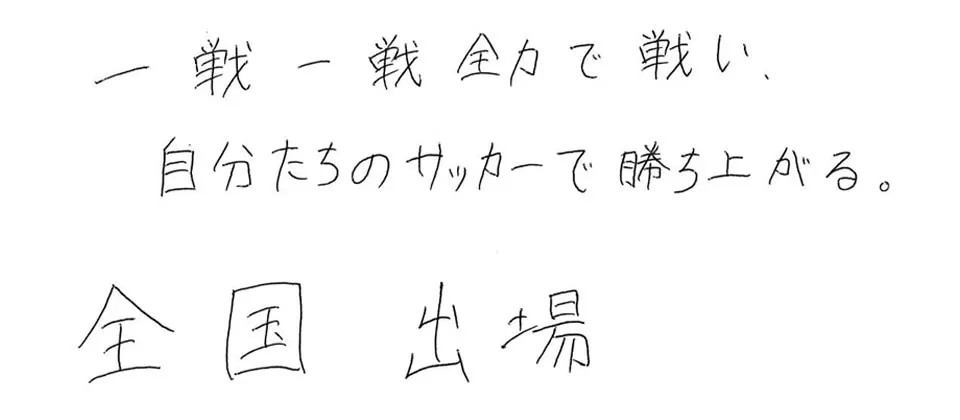 一戦一戦全力で戦い、
自分たちのサッカーで勝ち上がる。
全国出場